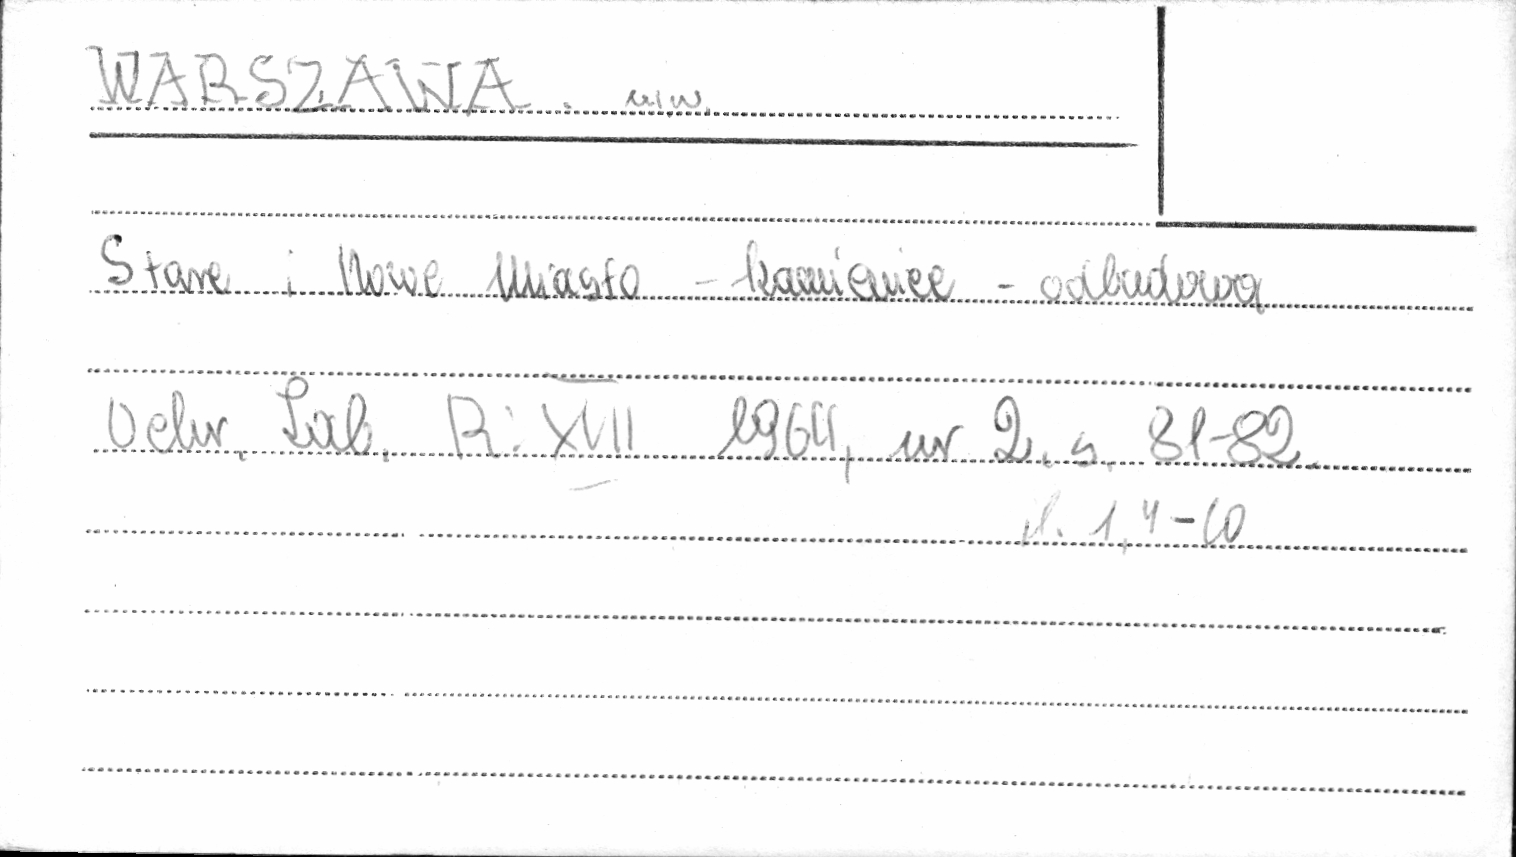 WARSZAWA. m/w.
Stare i Nowe Miasto - kamienice - odbudowa
Ochr. Zab. R: XVII 1964, nr 2. s. 81-82.
il. 1, 4-10